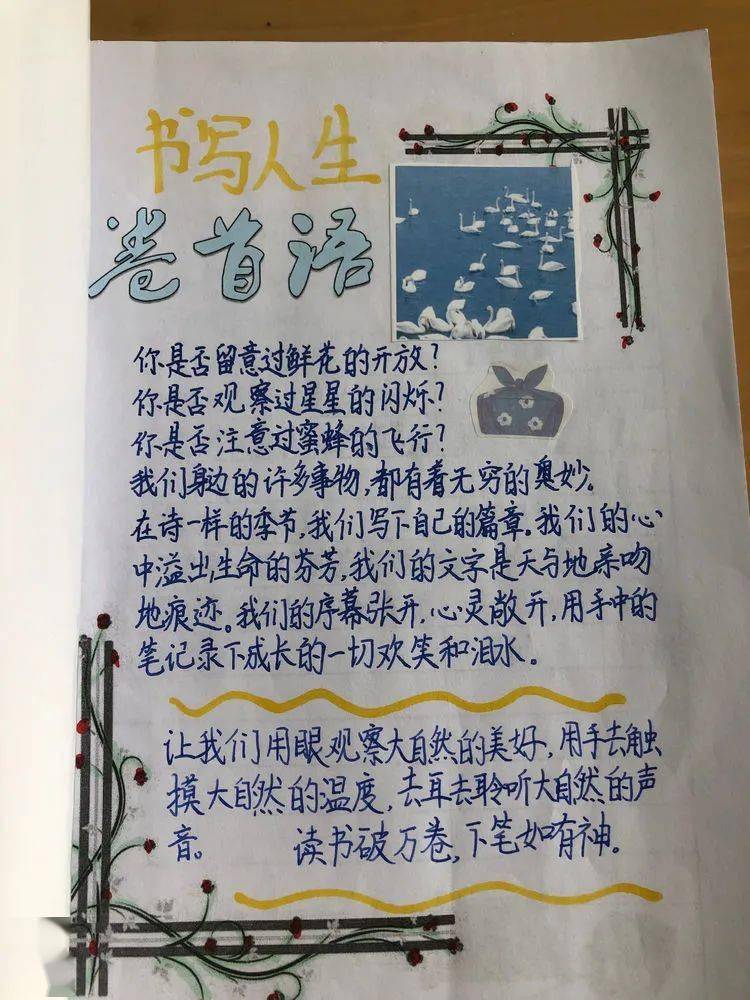 书写人生
卷首语
你是否留意过鲜花的开放?
你是否观察过星星的闪烁?
你是否注意过蜜蜂的飞行?
我们身边的许多事物,都有着无穷的奥妙。
在诗一样的季节,我们写下自己的篇章。我们的心
中溢出生命的芬芳,我们的文字是天与地亲吻
地痕迹。我们的序幕张开,心灵敞开,用手中的
笔记录下成长的一切欢笑和泪水。
让我们用眼观察大自然的美好,用手去触
摸大自然的温度,去耳去聆听大自然的声
音。 读书破万卷,下笔如有神。